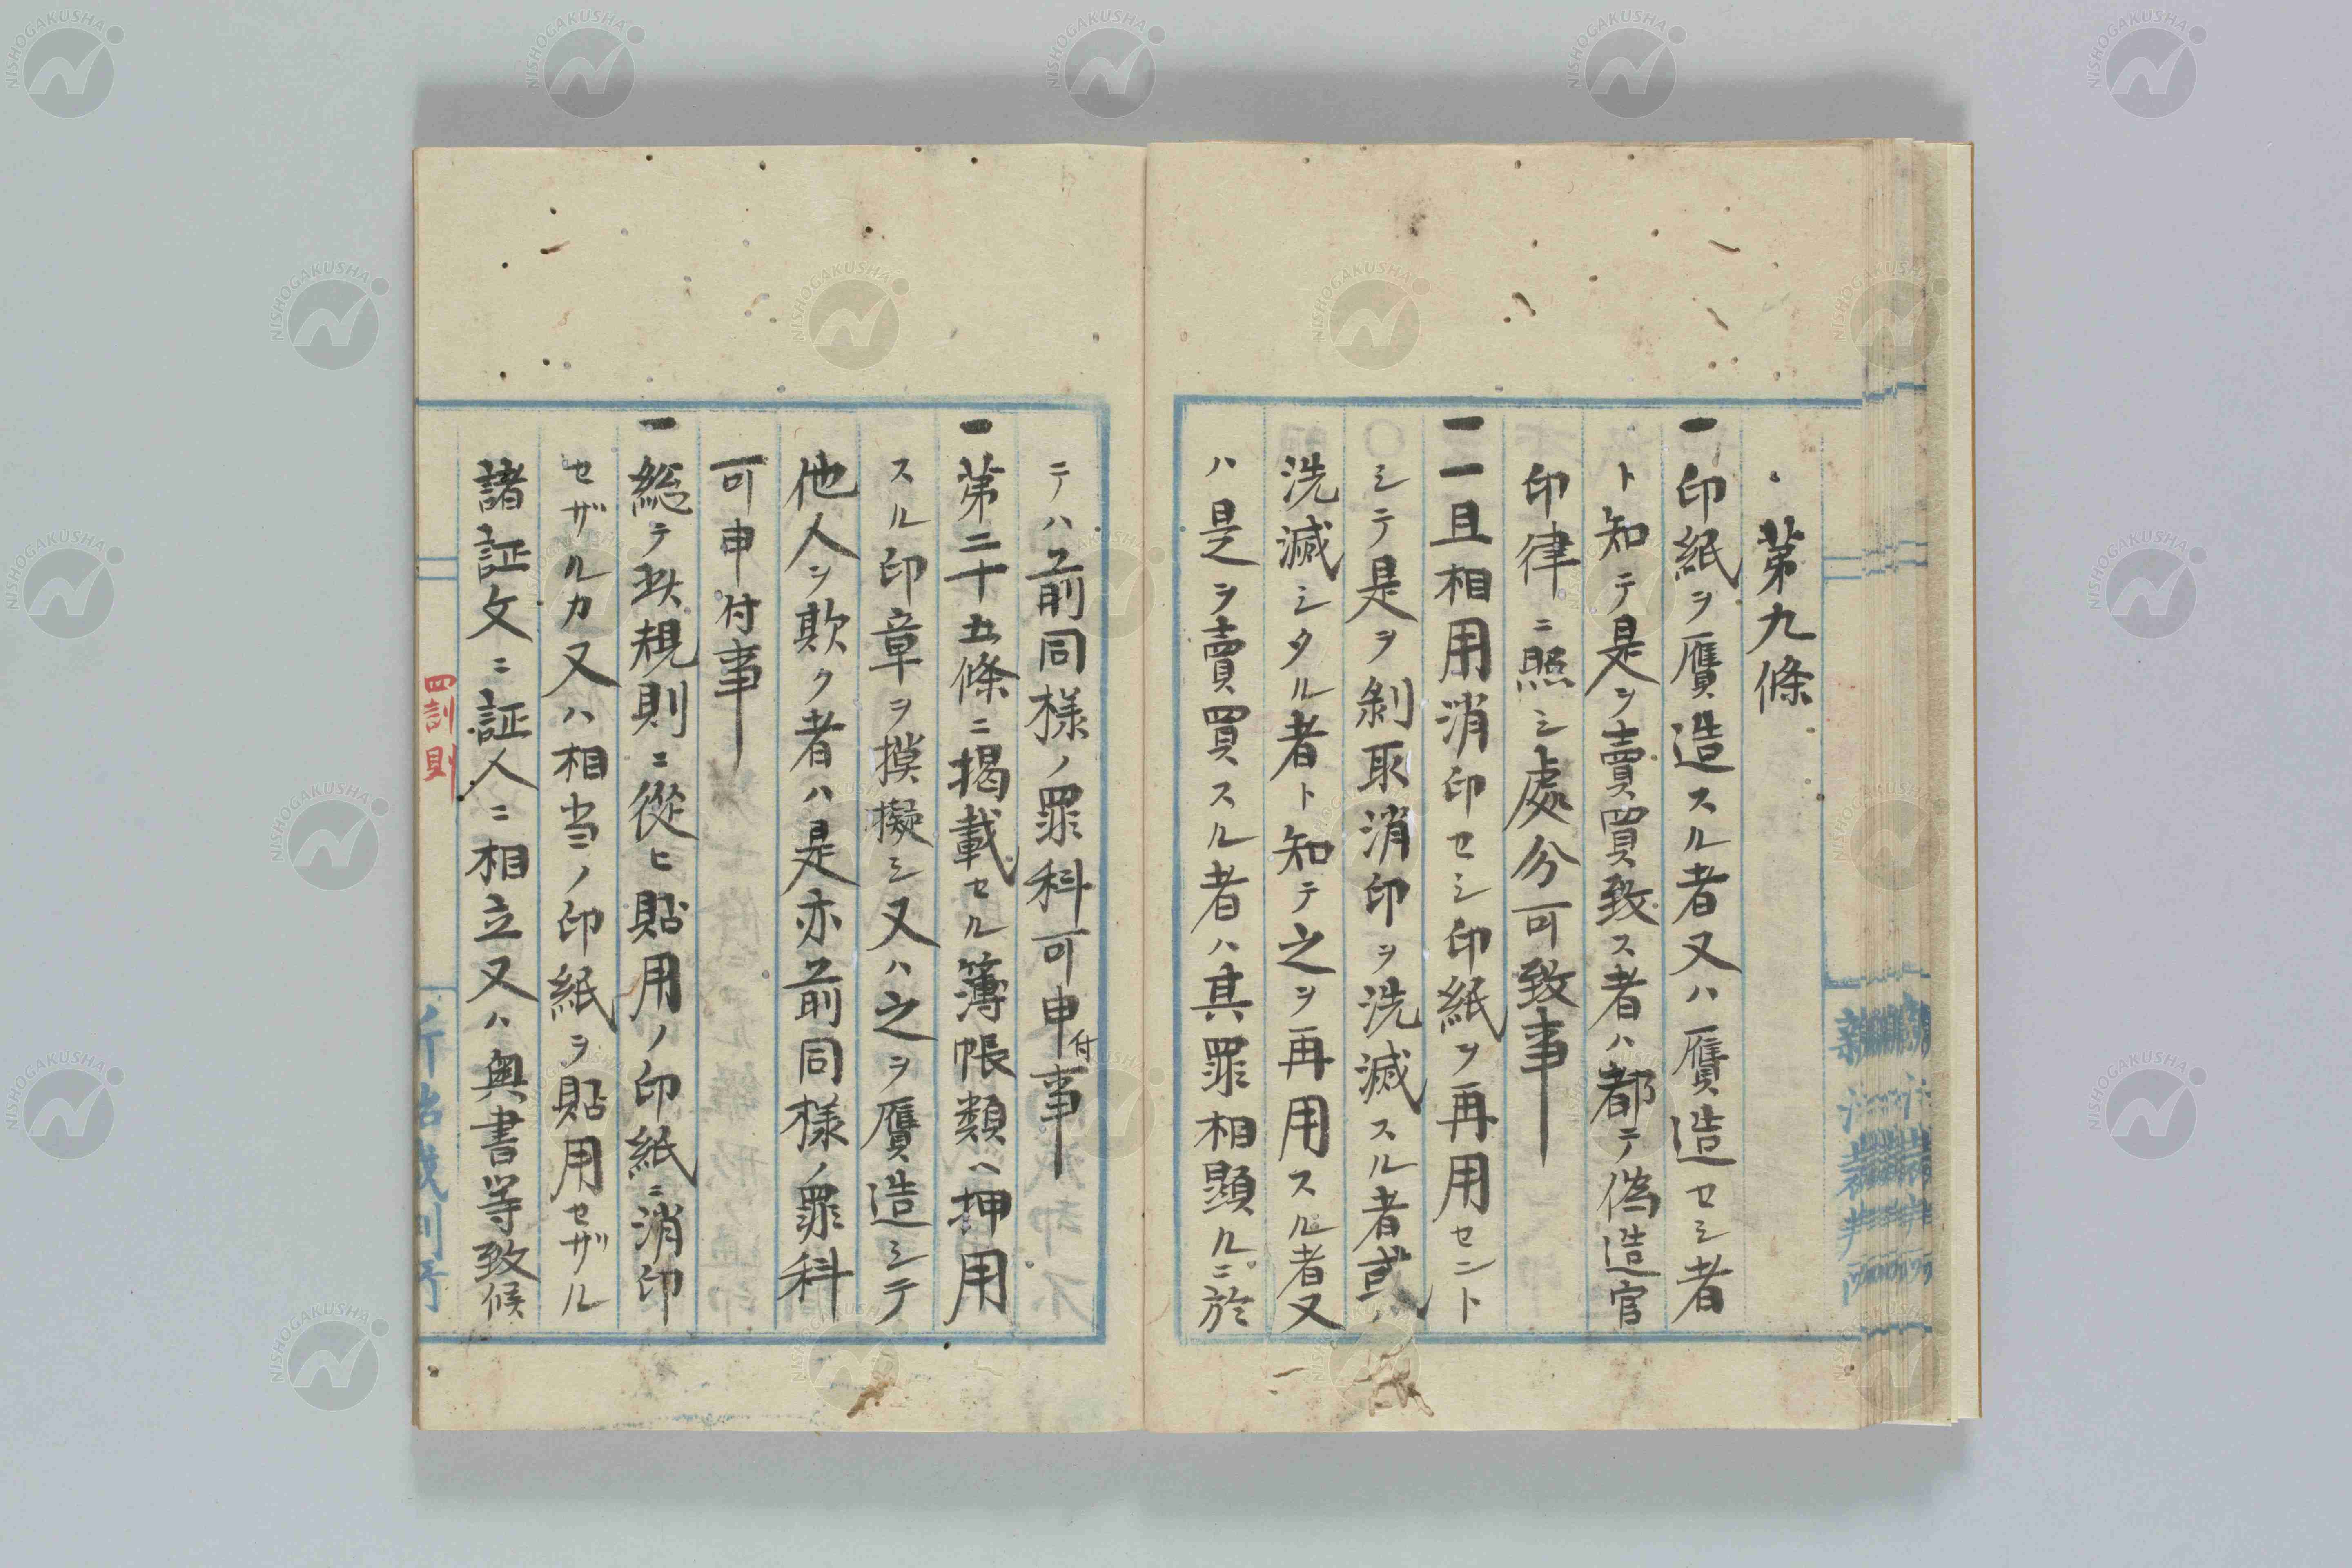 第九條
一印紙ヲ贋造スル者又ハ贋造セシ者
ト知テ是ヲ賣買致ス者ハ都テ偽造官
印律ニ照シ處分可致事
一一且相用消印セシ印紙ヲ再用セント
シテ是ヲ剝取消印ヲ洗滅スル者或ハ
洗滅シタル者ト知テ之ヲ再用スル者又
ハ是ヲ賣買スル者ハ其罪相顕ルニ於
テハ前同様ノ罪科可申付事
一第二十五條ニ掲載セル簿帳類ヘ押用
スル印章ヲ摸擬シ又ハ之ヲ贋造シテ
他人ヲ欺ク者ハ是亦前同様ノ罪科
可申付事
一総テ此規則ニ從ヒ貼用ノ印紙ニ消印
セザルカ又ハ相当ノ印紙ヲ貼用セザル
諸証文ニ証人ニ相立又ハ奥書等致候